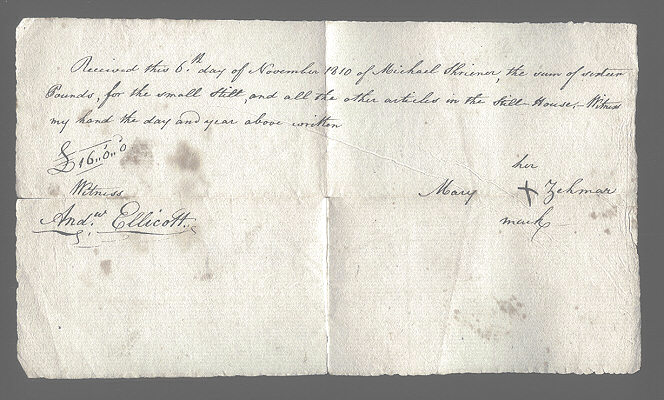 Received this 6.th day of November 1810 of Michael Shriener, the sum of sixteen
Pounds, for the small Still, and all the other articles in the Still-House,- Witness
my hand the day and year above written
£16..0..0
her
Witness
Mary + Zehmar
mark
And.w Ellicott